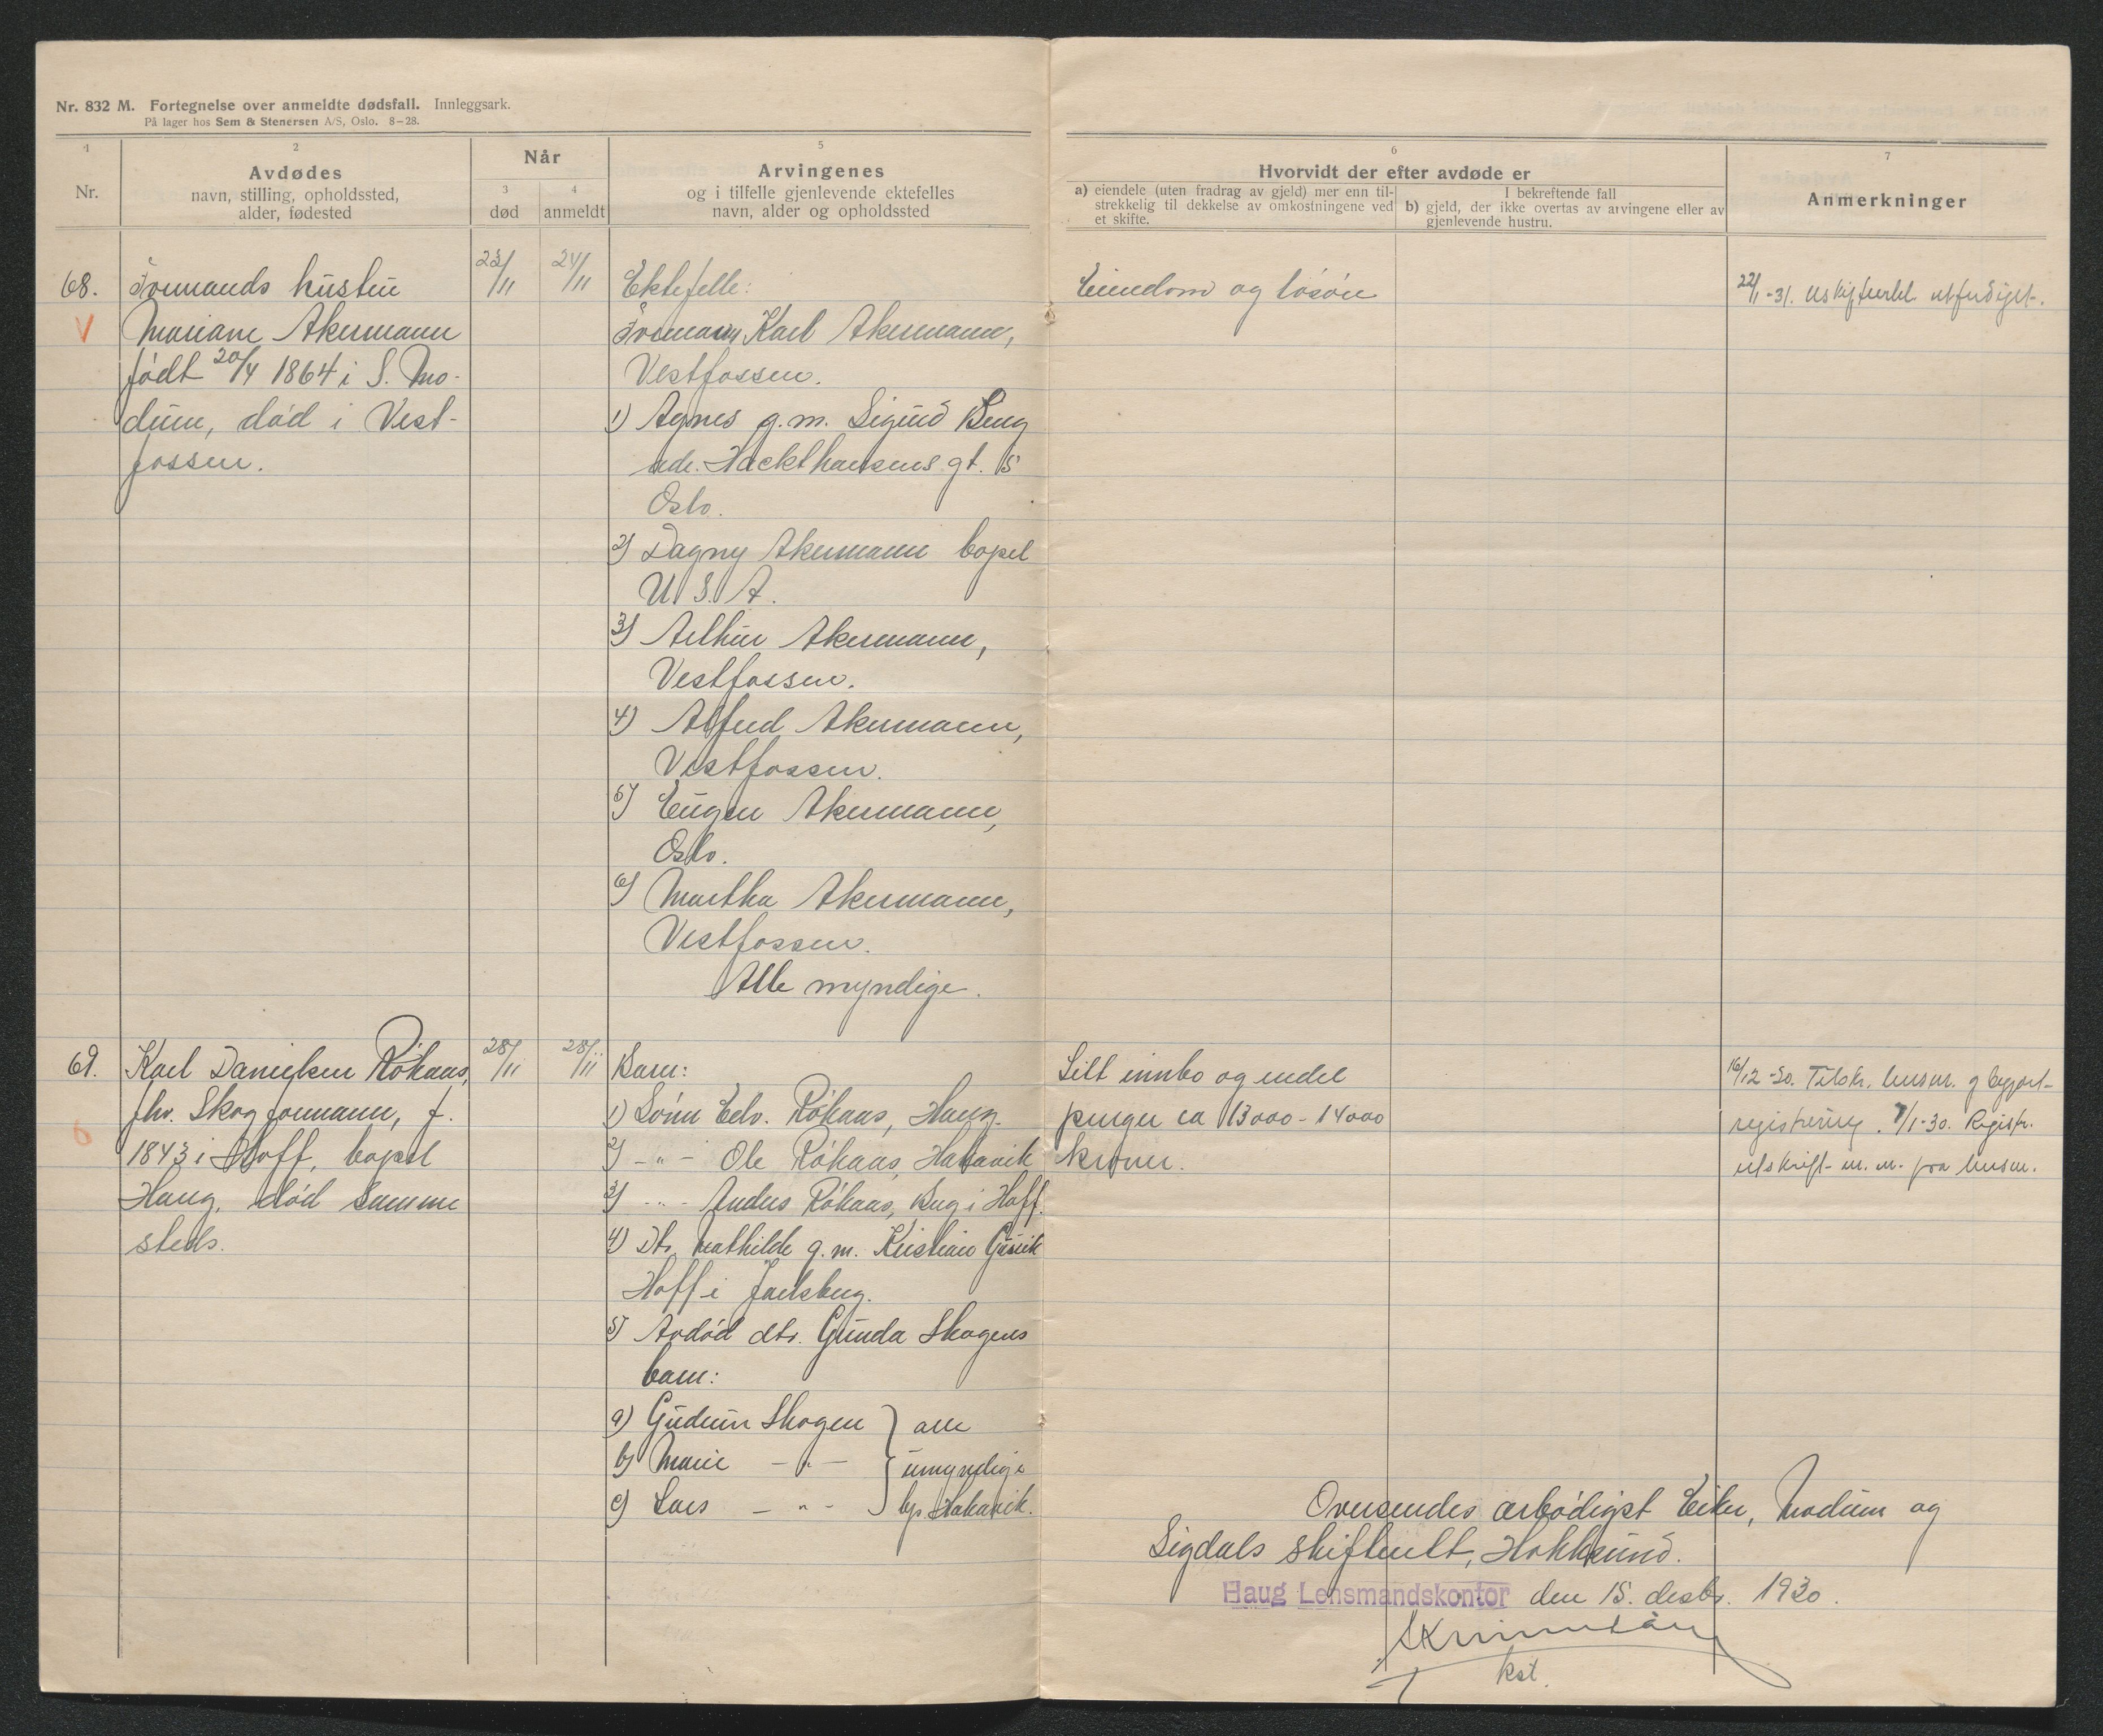 Nr. 832 M. Fortegnelse over anmeldte dødsfall. Innleggsark.
På lager hos Sem & Stenersen A/S, Oslo. 8-28.
1
Nr.
2
Avdødes
navn, stilling, opholdssted,
alder, fødested
Når
3
død
4
anmeldt
5
Arvingenes
og i tilfelle gjenlevende ektefelles
navn, alder og opholdssted
6
Hvorvidt der efter avdøde er
a) eiendele (uten fradrag av gjeld) mer enn til-
strekkelig til dekkelse av omkostningene ved
et skifte.
I bekreftende fall
b) gjeld, der ikke overtas av arvingene eller av
gjenlevende hustru.
7
Anmerkninger
68.
V
hustru
Mariane Akermann
født 20/4 1864 i S. Mo-
dum, død i Vest-
fossen.
23/11
24/11
Ektefelle:
Karl Akermann,
Vestfossen.
1) Agnes g.m. Sigurd Berg
adr. Hackthausens gt. 5
Oslo.
2) Dagny Akermann bopel
U.S.A.
3) Arthur Akermann,
Vestfossen.
4) Alfred Akermann,
Vestfossen.
5) Eugen Akermann,
Oslo.
6) Martha Akermann,
Vestfossen.
Alle myndige.
Eiendom og løsøre
22/1-31. utferdiget.
69.
Karl Danielsen Røkaas,
fhv. Skogformann, f.
1843 i Hoff, bopel
Haug, død samme
steds.
28/11
28/11
Barn:
1) Sønn Edv. Røkaas, Haug.
2) -"- Ole Røkaas, Hakavik
3) -"- Anders Røkaas, Berg i Hoff.
4) Dtr. Mathilde g.m. Kristian
Hoff i Jarlsberg.
5) Avdød dtr. Gunda Skogens
barn:
a) Gudrun Skogen } alle
b) Marie -"- umyndige
c) Lars -"- bp. Hakavik.
Litt innbo og endel
penger ca 13000-14000
kroner.
16/12-30. Tilskr. lensm. og begjært
registrering. 7/1-30. Registr.
utskrift m.m. fra lensm.
Oversendes ærbødigst Eiker, Modum og
Sigdals skifterett, Hokksund.
Haug Lensmandskontor den 15. desbr. 1930.
kst.